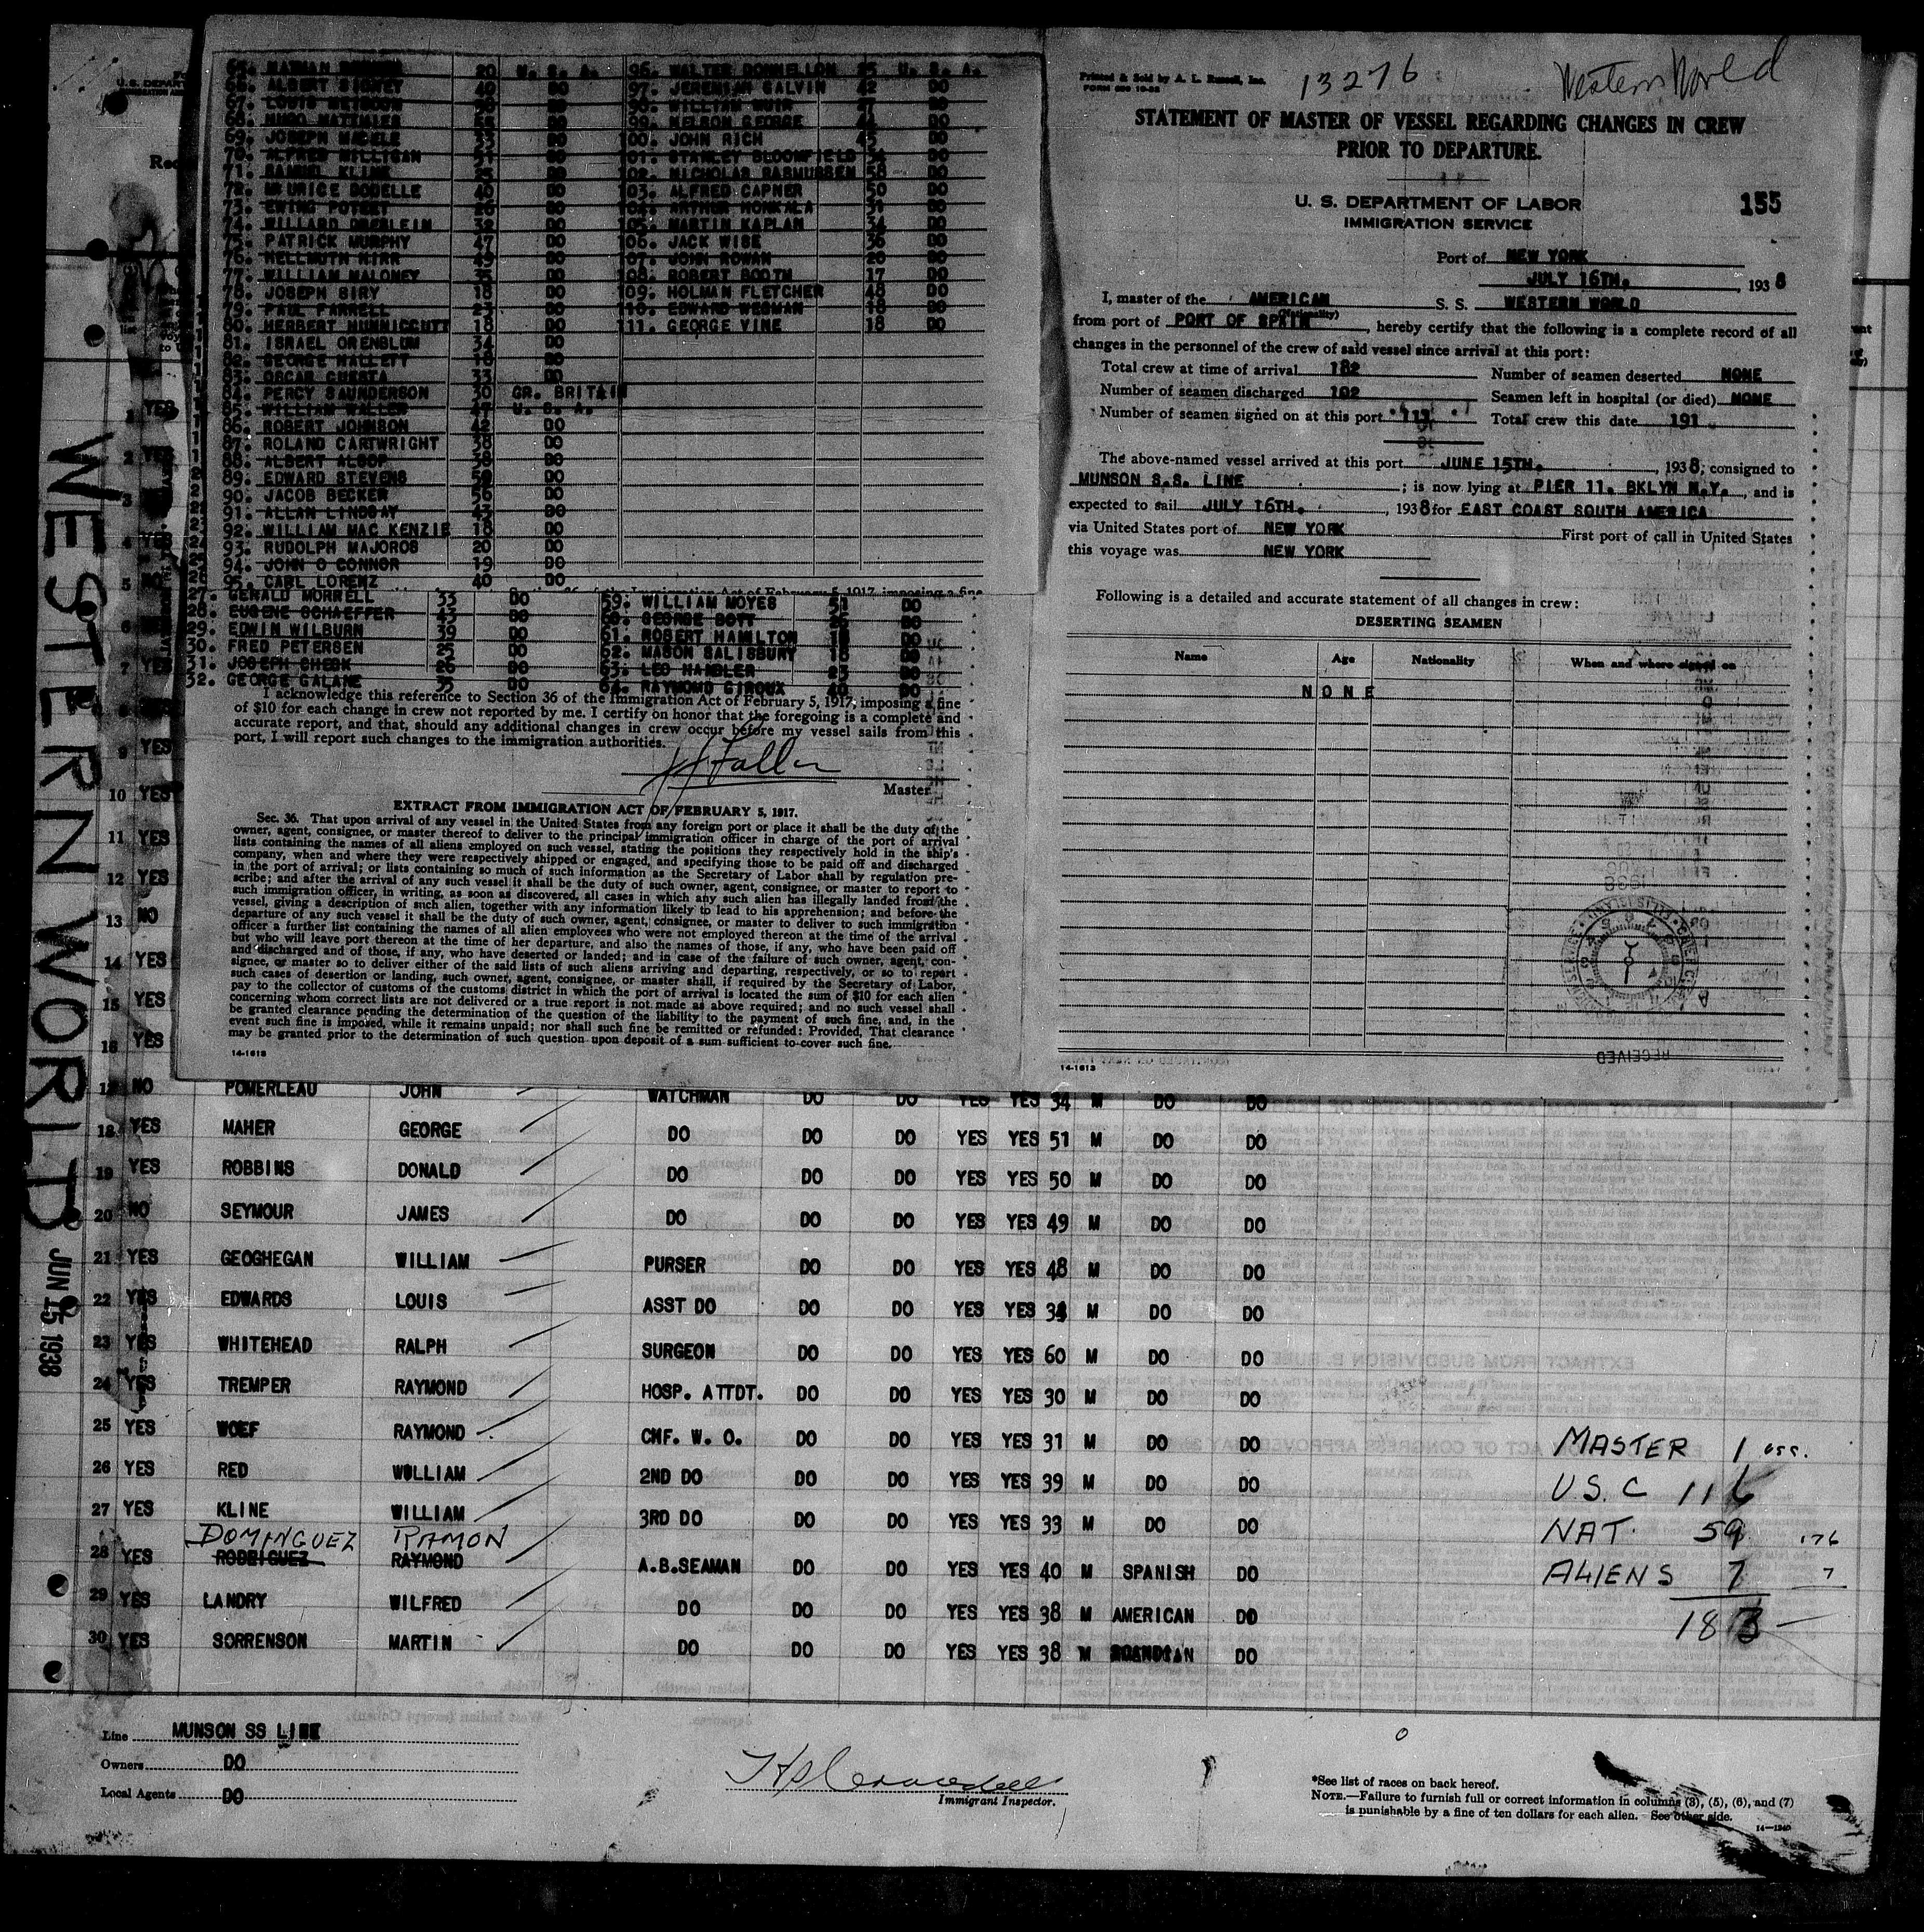 WESTERN WORLD
JUN 15 1938
67. LOUIS
69. JOSEPH
70. ALFRED MILLIGAN 51 DO
71. SAMUEL KLINE 25 DO
72. MAURICE DODELLE 40 DO
73. EWING POTEET 26 DO
74. WILLARD OBERLEIN 32 DO
75. PATRICK MURPHY 47 DO
76. HELLMUTH HIRR 49 DO
77. WILLIAM MALONEY 35 DO
78. JOSEPH BIRY 18 DO
79. PAUL FARRELL 23 DO
80. HERBERT HUNNICUTT 18 DO
81. ISRAEL ORENBLUM 34 DO
82. GEORGE HALLETT 18 DO
83. OSCAR CUESTA 33 DO
84. PERCY SAUNDERSON 30 GR. BRITAIN
85. WILLIAM WALLER 47 U. S. A.
86. ROBERT JOHNSON 42 DO
87. ROLAND CARTWRIGHT 38 DO
88. ALBERT ALSOP 38 DO
89. EDWARD STEVENS 59 DO
90. JACOB BECKER 56 DO
91. ALLAN LINDSAY 43 DO
92. WILLIAM MAC KENZIE 18 DO
93. RUDOLPH MAJOROS 20 DO
94. JOHN O CONNOR 19 DO
95. CARL LORENZ 40 DO
96. WALTER DONNELLON 25 U. S. A.
97. JEREMIAH GALVIN 42 DO
98. WILLIAM MUIR 27 DO
99. NELSON GEORGE 44 DO
100. JOHN RICH 45 DO
101. STANLEY BLOOMFIELD 34 DO
102. NICHOLAS RASMUSSEN 58 DO
103. ALFRED CAPNER 50 DO
104. ARTHUR HONKALA 31 DO
105. MARTIN KAPLAN 34 DO
106. JACK WISE 36 DO
107. JOHN ROWAN 20 DO
108. ROBERT BOOTH 17 DO
109. HOLMAN FLETCHER 48 DO
110. EDWARD WEGMAN 18 DO
111. GEORGE VINE 18 DO
27. GERALD MORRELL 33 DO
28. EUGENE SCHAEFFER 43 DO
29. EDWIN WILBURN 39 DO
30. FRED PETERSEN 25 DO
31. JOSEPH CHECK 26 DO
32. GEORGE GALANE 35 DO
59. WILLIAM MOYES 51 DO
60. GEORGE BOTT 26 DO
61. ROBERT HAMILTON 18 DO
62. MASON SALISBURY 18 DO
63. LEO HANDLER 23 DO
64. RAYMOND GIROUX 40 DO
I acknowledge this reference to Section 36 of the Immigration Act of February 5, 1917, imposing a fine
of $10 for each change in crew not reported by me. I certify on honor that the foregoing is a complete and
accurate report, and that, should any additional changes in crew occur before my vessel sails from this
port, I will report such changes to the immigration authorities.
Master
EXTRACT FROM IMMIGRATION ACT OF FEBRUARY 5, 1917.
Sec. 36. That upon arrival of any vessel in the United States from any foreign port or place it shall be the duty of the
owner, agent, consignee, or master thereof to deliver to the principal immigration officer in charge of the port of arrival
lists containing the names of all aliens employed on such vessel, stating the positions they respectively hold in the ship's
company, when and where they were respectively shipped or engaged, and specifying those to be paid off and discharged
in the port of arrival; or lists containing so much of such information as the Secretary of Labor shall by regulation pre-
scribe; and after the arrival of any such vessel it shall be the duty of such owner, agent, consignee, or master to report to
such immigration officer, in writing, as soon as discovered, all cases in which any such alien has illegally landed from the
vessel, giving a description of such alien, together with any information likely to lead to his apprehension; and before the
departure of any such vessel it shall be the duty of such owner, agent, consignee, or master to deliver to such immigration
officer a further list containing the names of all alien employees who were not employed thereon at the time of the arrival
but who will leave port thereon at the time of her departure, and also the names of those, if any, who have been paid off
and discharged and of those, if any, who have deserted or landed; and in case of the failure of such owner, agent, con-
signee, or master so to deliver either of the said lists of such aliens arriving and departing, respectively, or so to report
such cases of desertion or landing, such owner, agent, consignee, or master shall, if required by the Secretary of Labor,
pay to the collector of customs of the customs district in which the port of arrival is located the sum of $10 for each alien
concerning whom correct lists are not delivered or a true report is not made as above required; and no such vessel shall
be granted clearance pending the determination of the question of the liability to the payment of such fine, and, in the
event such fine is imposed, while it remains unpaid; nor shall such fine be remitted or refunded: Provided, That clearance
may be granted prior to the determination of such question upon deposit of a sum sufficient to cover such fine.
14-1613
Printed & Sold by A. L. Russell, Inc.
13276
Western World
STATEMENT OF MASTER OF VESSEL REGARDING CHANGES IN CREW
PRIOR TO DEPARTURE.
U. S. DEPARTMENT OF LABOR
IMMIGRATION SERVICE
155
Port of NEW YORK
JULY 16TH. , 1938
I, master of the AMERICAN S. S. WESTERN WORLD
(Nationality)
from port of PORT OF SPAIN , hereby certify that the following is a complete record of all
changes in the personnel of the crew of said vessel since arrival at this port:
Total crew at time of arrival 182 Number of seamen deserted NONE
Number of seamen discharged 102 Seamen left in hospital (or died) NONE
Number of seamen signed on at this port 111 Total crew this date 191
The above-named vessel arrived at this port JUNE 15TH. , 1938, consigned to
MUNSON S.S. LINE ; is now lying at PIER 11. BKLYN N.Y. , and is
expected to sail JULY 16TH. , 1938 for EAST COAST SOUTH AMERICA
via United States port of NEW YORK First port of call in United States
this voyage was NEW YORK
Following is a detailed and accurate statement of all changes in crew:
DESERTING SEAMEN
Name Age Nationality When and where signed on
NONE
RECEIVED
14-1613
1 YES
2 YES
3
4 YES
5 NO
6
7 YES
8
9 YES
10 YES
11 YES
12 YES
13 NO
14 YES
15 YES
16 YES
17 NO POMERLEAU JOHN WATCHMAN DO DO YES YES 34 M DO DO
18 YES MAHER GEORGE DO DO DO YES YES 51 M DO DO
19 YES ROBBINS DONALD DO DO DO YES YES 50 M DO DO
20 NO SEYMOUR JAMES DO DO DO YES YES 49 M DO DO
21 YES GEOGHEGAN WILLIAM PURSER DO DO YES YES 48 M DO DO
22 YES EDWARDS LOUIS ASST DO DO DO YES YES 34 M DO DO
23 YES WHITEHEAD RALPH SURGEON DO DO YES YES 60 M DO DO
24 YES TREMPER RAYMOND HOSP. ATTDT. DO DO YES YES 30 M DO DO
25 YES WOEF RAYMOND CHF. W. O. DO DO YES YES 31 M DO DO
26 YES RED WILLIAM 2ND DO DO DO YES YES 39 M DO DO
27 YES KLINE WILLIAM 3RD DO DO DO YES YES 33 M DO DO
DOMINGUEZ RAMON
28 YES RODRIGUEZ RAYMOND A.B.SEAMAN DO DO YES YES 40 M SPANISH DO
29 YES LANDRY WILFRED DO DO DO YES YES 38 M AMERICAN DO
30 YES SORRENSON MARTIN DO DO DO YES YES 38 M DO
MASTER 1
U.S.C 116
NAT. 59 176
ALIENS 7 7
183
Line MUNSON SS LINE
Owners DO
Local Agents DO
Immigrant Inspector.
*See list of races on back hereof.
NOTE.—Failure to furnish full or correct information in columns (3), (5), (6), and (7)
is punishable by a fine of ten dollars for each alien. See other side.
14-1240